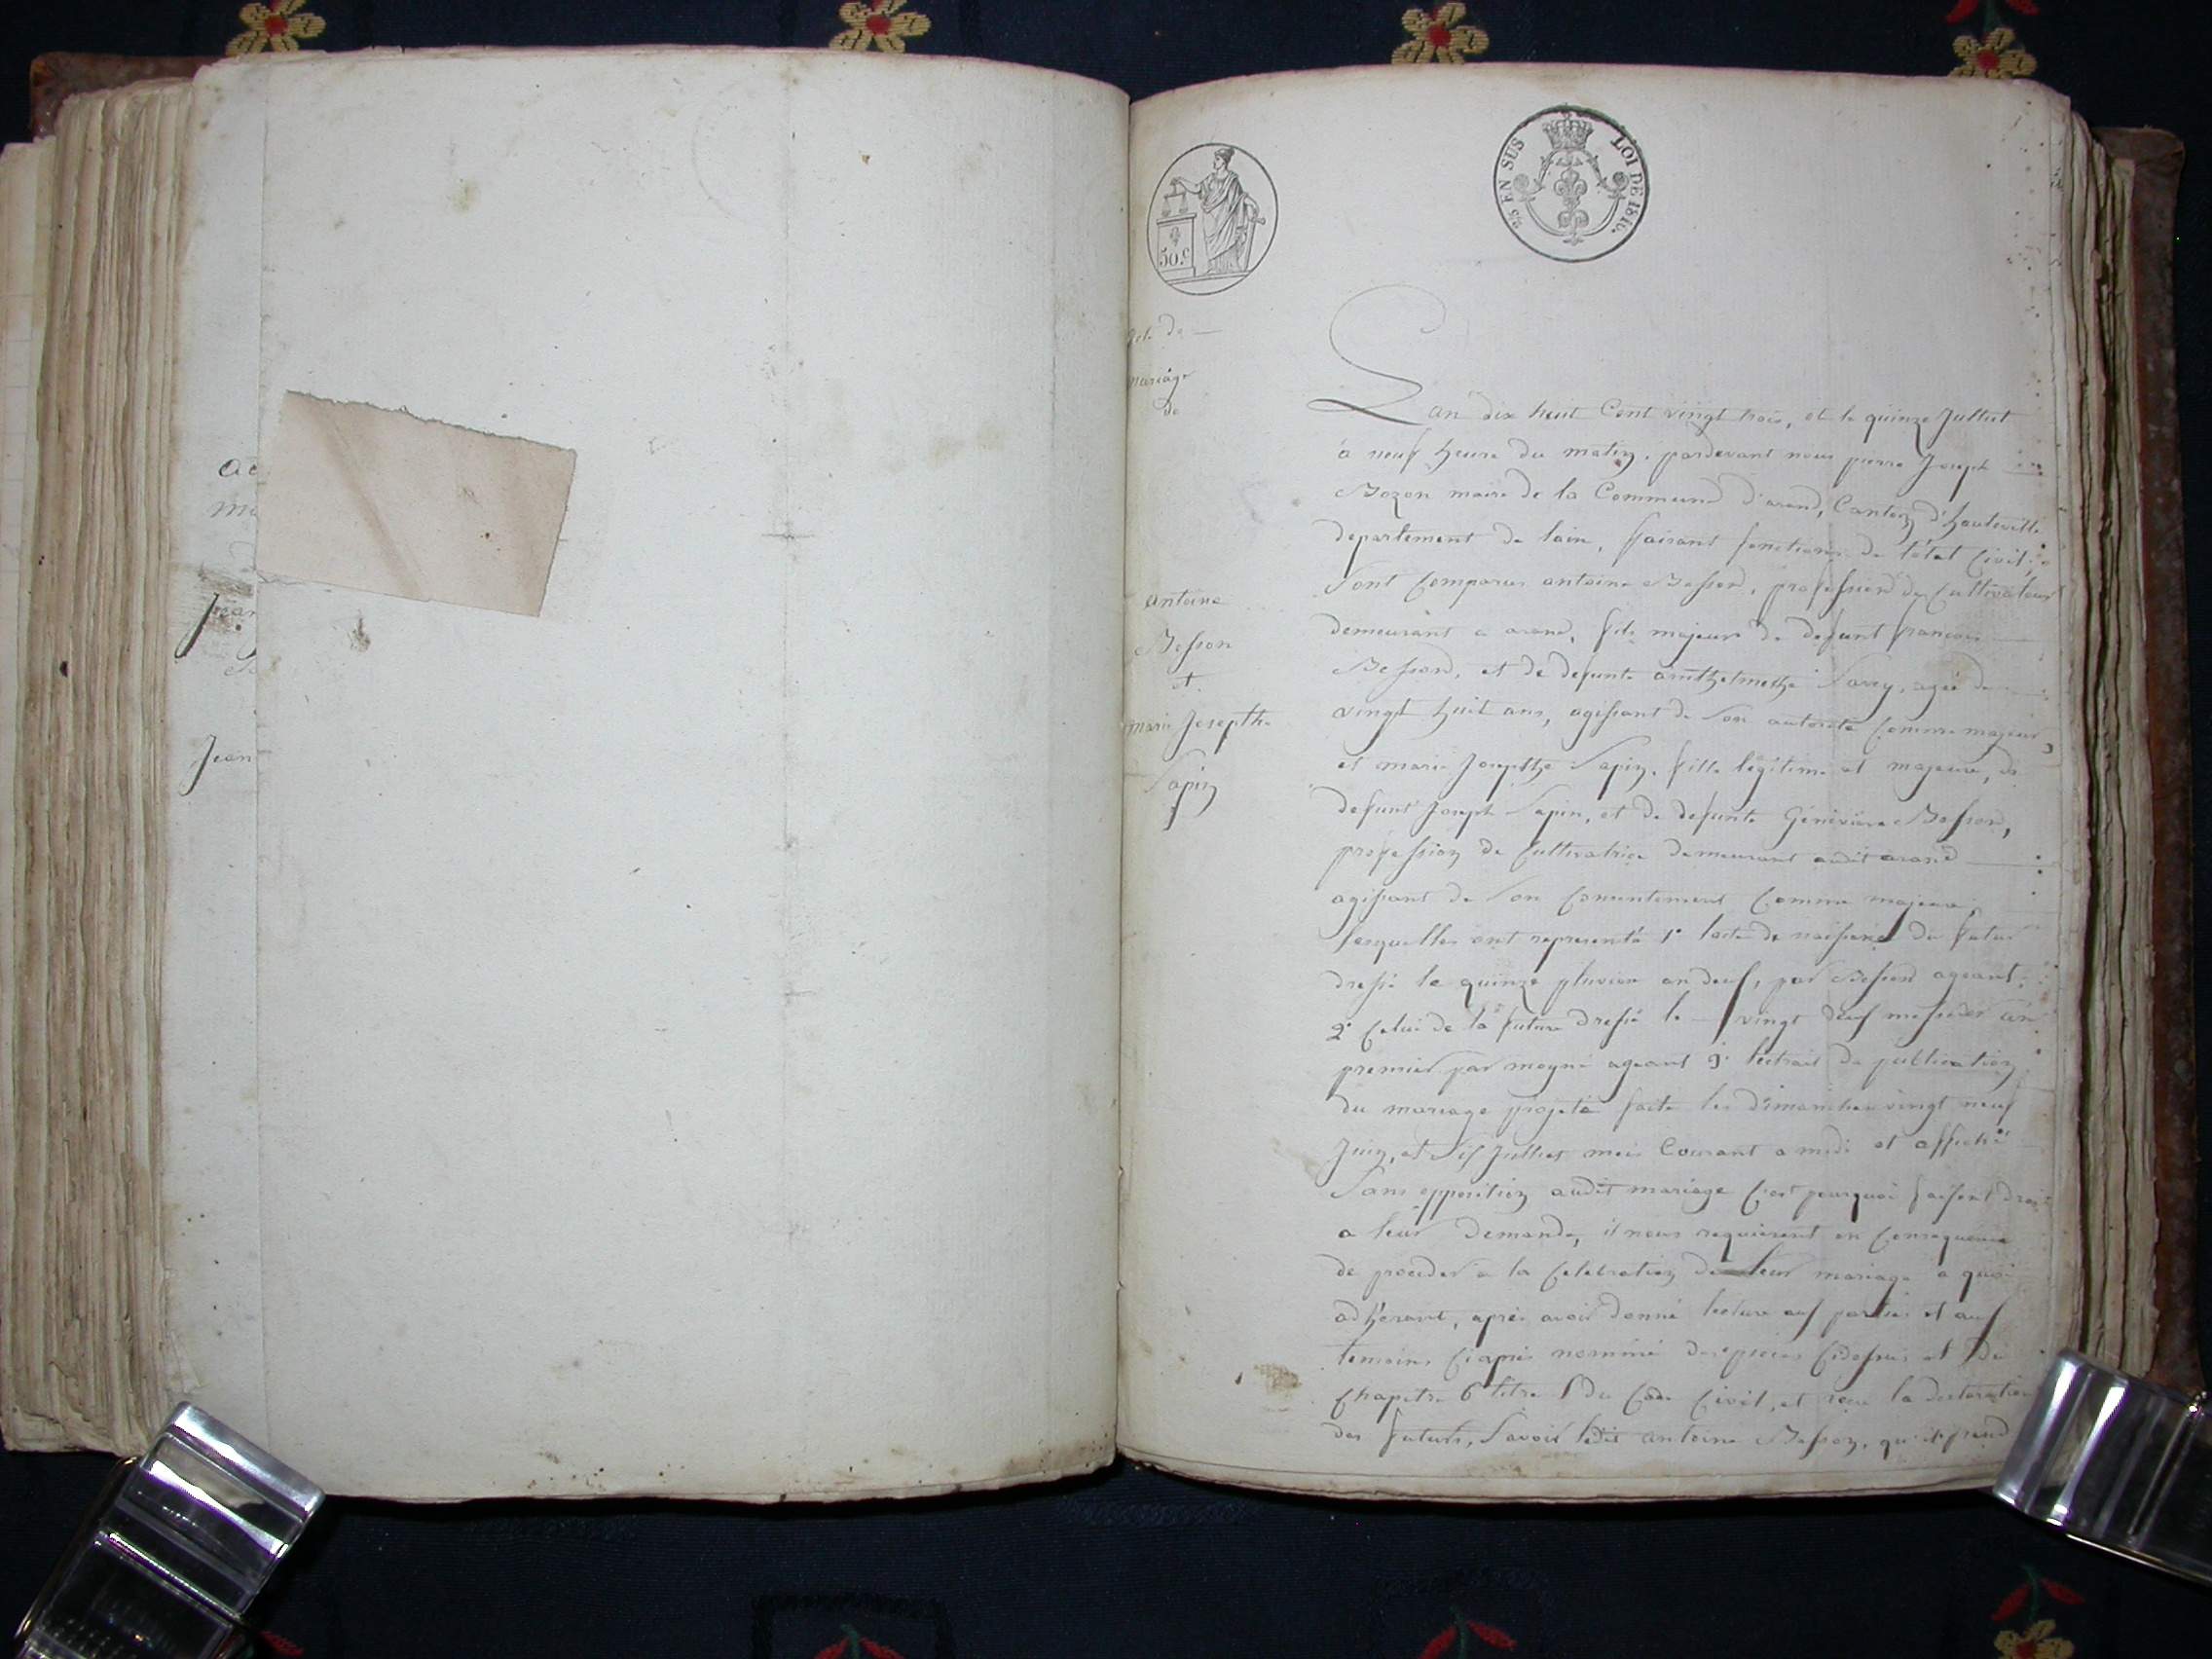 ac
Jean
50 c
2/5 EN SUS
LOI DE 1816.
acte de
mariage
de
antoine
Besson
et
marie Josepthe
Sapin
Lan dix huit Cent vingt trois, et le quinze Julliet
à neuf heure du matin, pardevant nous pierre Joseph
Bozon maire de la Commune d'arand, Canton d'hauteville
departement de lain, faisant fonctions de l'état Civil,
Sont Comparus antoine Besson, profession de Cultivateur
demeurant a arand, fils majeur de defunt francois
Besson, et de defunte Savey, agée de
vingt huit ans, agissant de Son autorité Comme majeur,
et marie Josepthe Sapin, fille légitime et majeure, de
defunt Joseph Sapin, et de defunte Généviève Besson,
profession de Cultivatrice demeurant audit arand
agissant de Son Consentement Comme majeure
lesquelles ont representé 1° lacte de naissance du futur
dressé le quinze pluviose an deux, par Besson ageant,
2° Celui de la future dressé le vingt deux messidor an
premier par moyne ageant 3° lextrait de publication
du mariage projeté faite les dimanches vingt neuf
Juin, et Six Julliet mois Courant a midi et affiché
Sans opposition audit mariage C'est pourquoi faisant droit
a leur demande, il nous requierent en Consequence
de proceder a la Celebration de leur mariage a quoi
adhérant, après avoir donné lecture aux parties et aux
temoins Ciaprès nommé des pieces Cidessus et du
Chapitre 6 titre du Code Civil, et recu la declaration
des futurs, Savoir ledit antoine Besson, qu'il prend